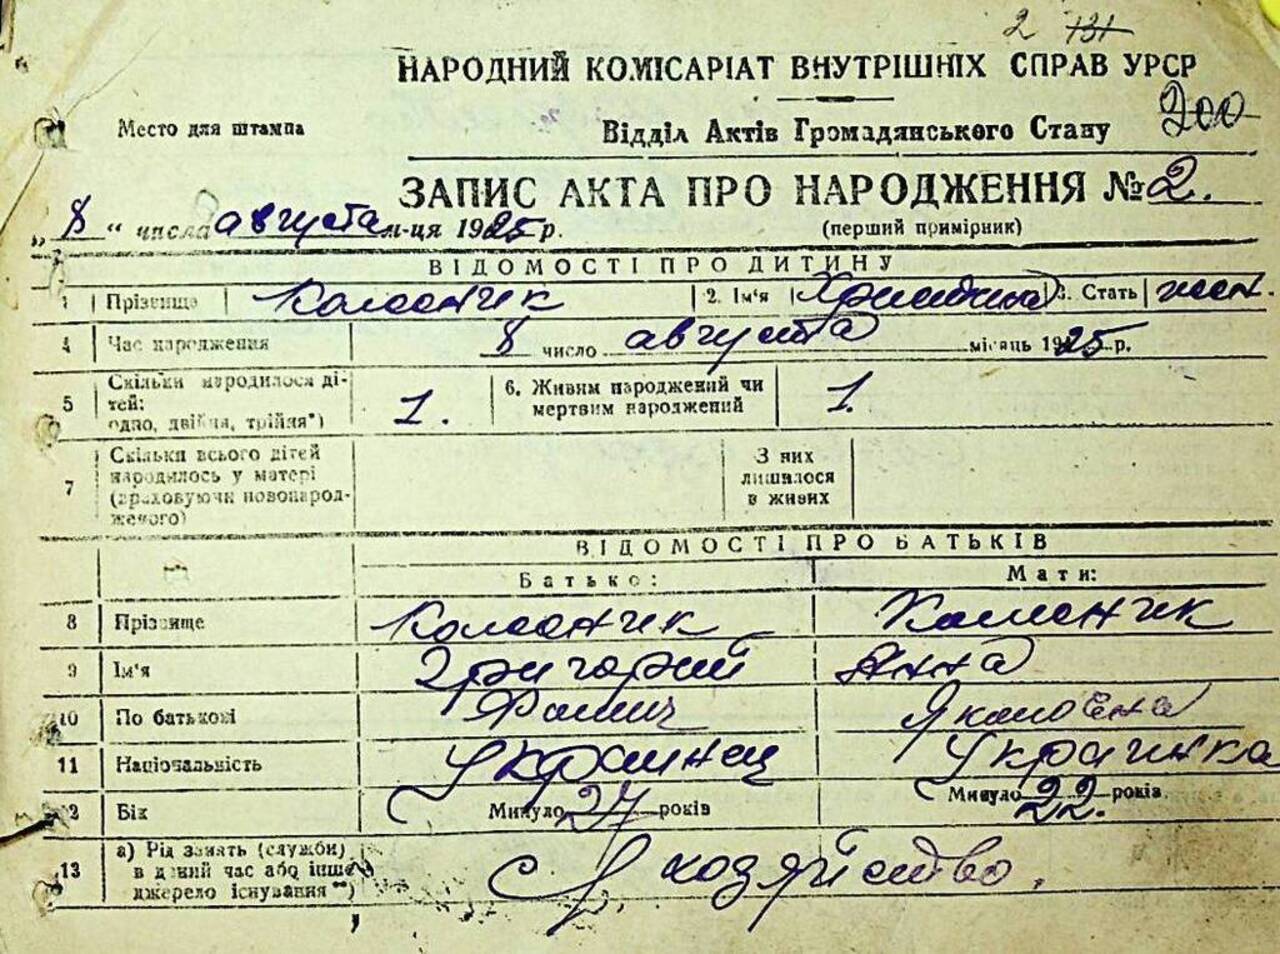 2 131
НАРОДНИЙ КОМІСАРІАТ ВНУТРІШНІХ СПРАВ УРСР
200
Место для штампа
Відділ Актів Громадянського Стану
ЗАПИС АКТА ПРО НАРОДЖЕННЯ № 2.
„8“ числа августа м-ця 1925 р.
(перший примірник)
ВІДОМОСТІ ПРО ДИТИНУ
1 Прізвище 2. Ім'я 3. Стать жен.
4 Час народження 8 число августа місяць 1925 р.
5 Скільки народилося ді-
тей:
одно, двійня, трійня*) 1.
6. Живим народжений чи
мертвим народжений 1.
7 Скільки всього дітей
народилось у матері
(враховуючи новонарод-
женого)
З них
лишилося
в живих
ВІДОМОСТІ ПРО БАТЬКІВ
Батько: Мати:
8 Прізвище
9 Ім'я Григорий Анна
10 По батькові Фомич Яковлевна
11 Національність Украинец Украинка
12 Вік Минуло 27 років Минуло 22. років.
13 а) Рід занять (служби)
в даний час або інше
джерело існування**) С/хозяйство.